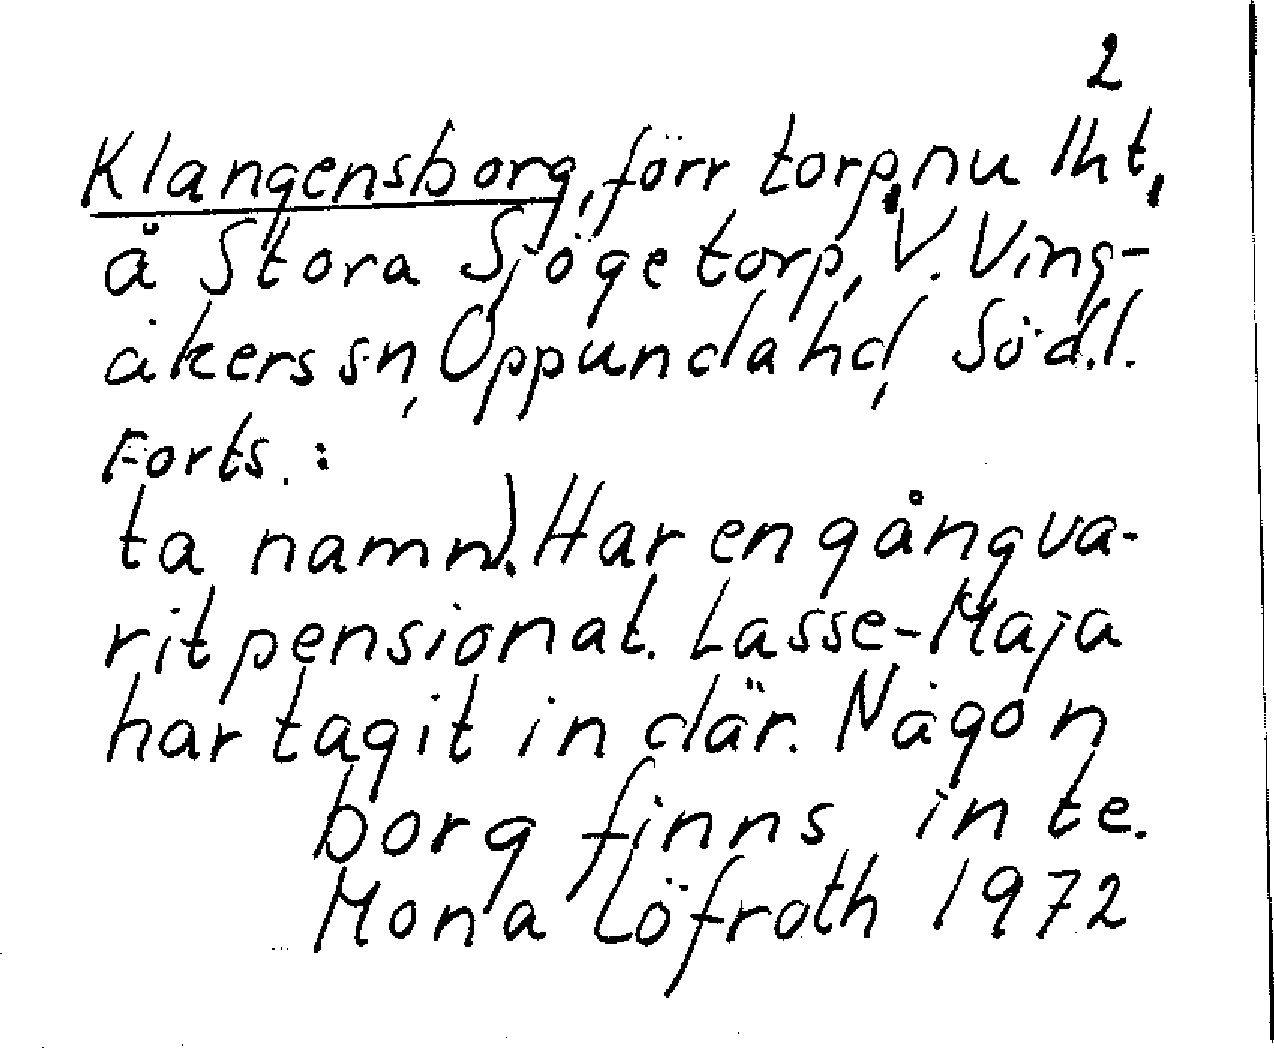 2
Klangensborg, förr torp, nu lht,
å Stora Sjögetorp, V. Ving-
åkers sn, Oppunda hd, Söd.l.
Forts.:
ta namn). Har en gång va-
rit pensionat. Lasse-Maja
har tagit in där. Någon
borg finns inte.
Mona Löfroth 1972